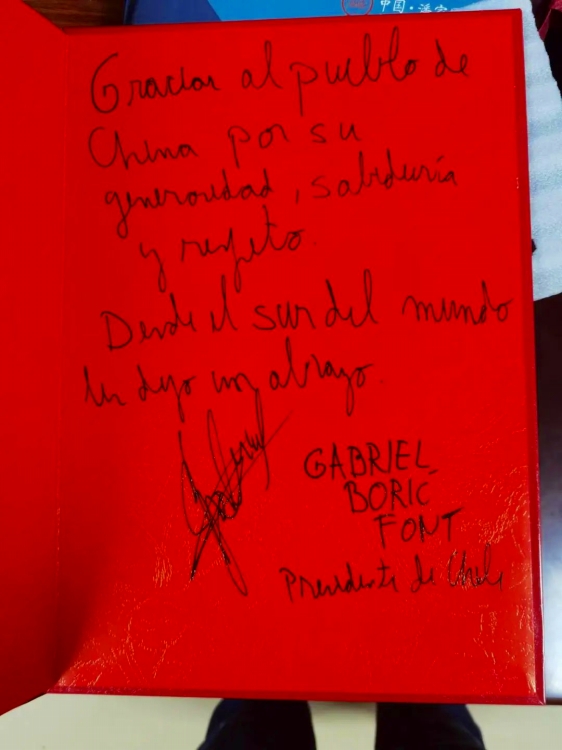 中国·
Gracias al pueblo de
China por su
generosidad, sabiduría
y respeto.
Desde el sur del mundo
les dejo un abrazo.
GABRIEL
BORIC
FONT
Presidente de Chile